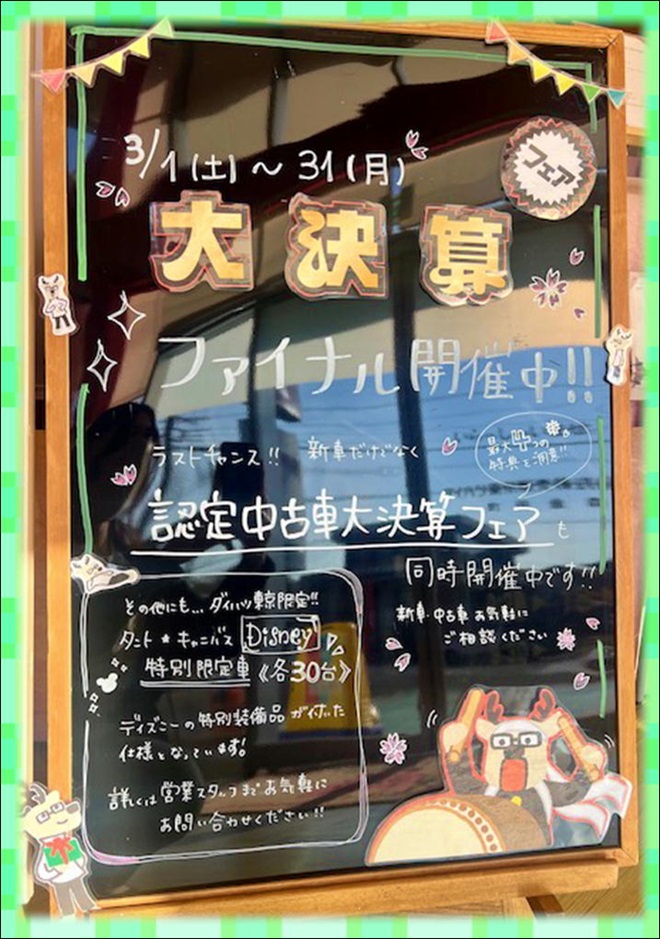 3/1(土)～31(月)
フェア
大決算
ファイナル開催中!!
ラストチャンス!! 新車だけでなく
最大4つの
特典をご用意!!
認定中古車大決算フェアも
同時開催中です!!
新車・中古車 お気軽に
ご相談ください
その他にも… ダイハツ東京限定!!
タント★キャンバス Disney
特別限定車《各30台》
ディズニーの特別装備品が付いた
仕様となっています!
詳しくは営業スタッフまでお気軽に
お問い合わせください!!